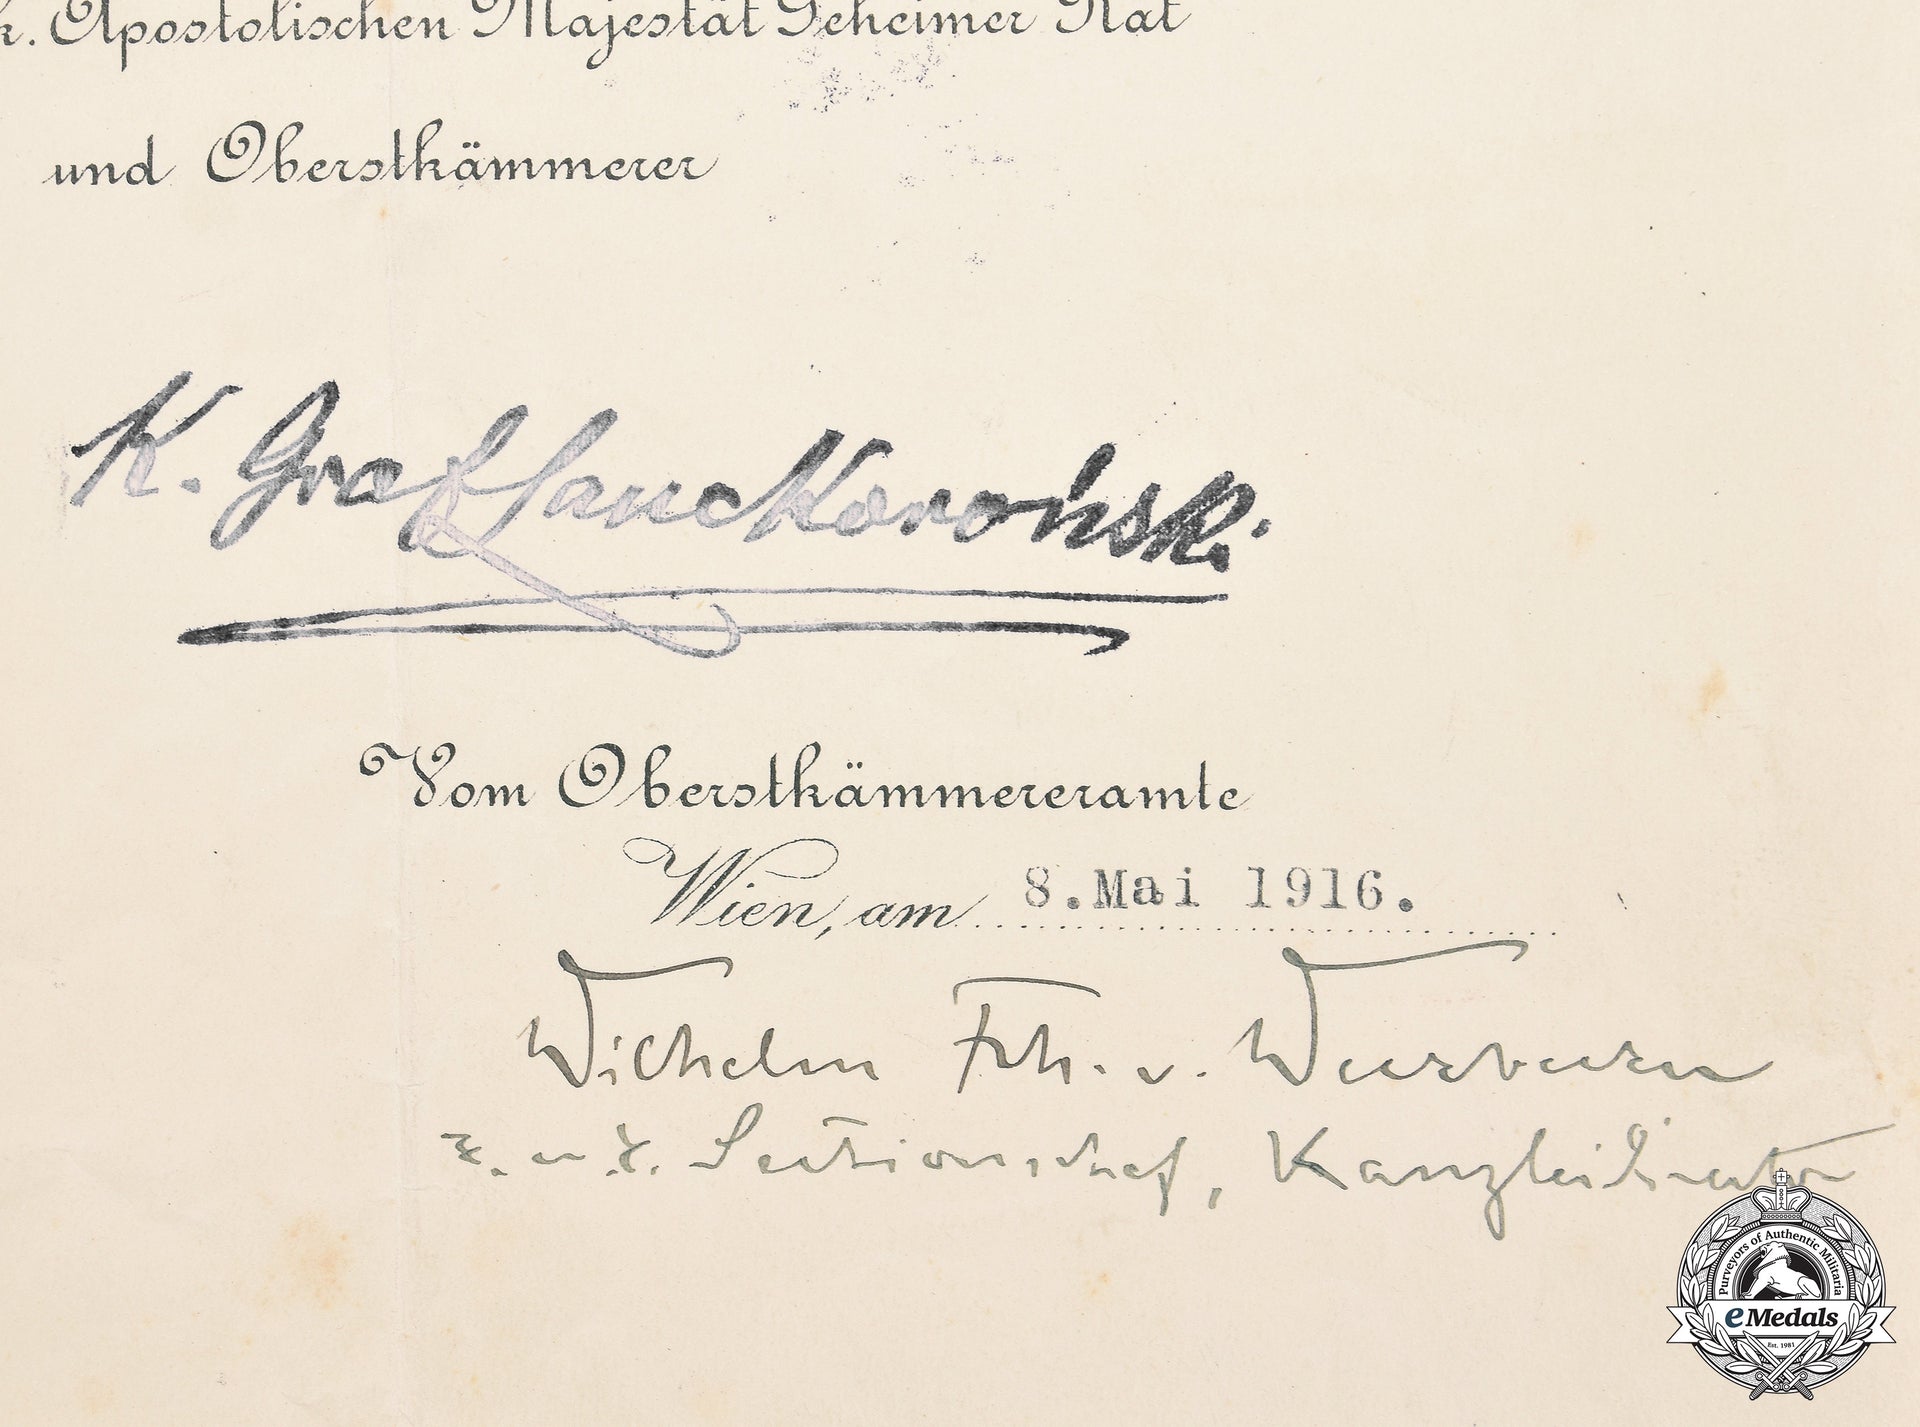 k. Apostolischen Majestät Geheimer Rat
und Oberstkämmerer
K. Graf Lanckoroński
Vom Oberstkämmereramte
Wien, am 8. Mai 1916.
Wilhelm Frh. v. Weckbecker
k. u. k. Sektionschef, Kanzleidirektor
Purveyors of Authentic Militaria
eMedals
Est. 1981